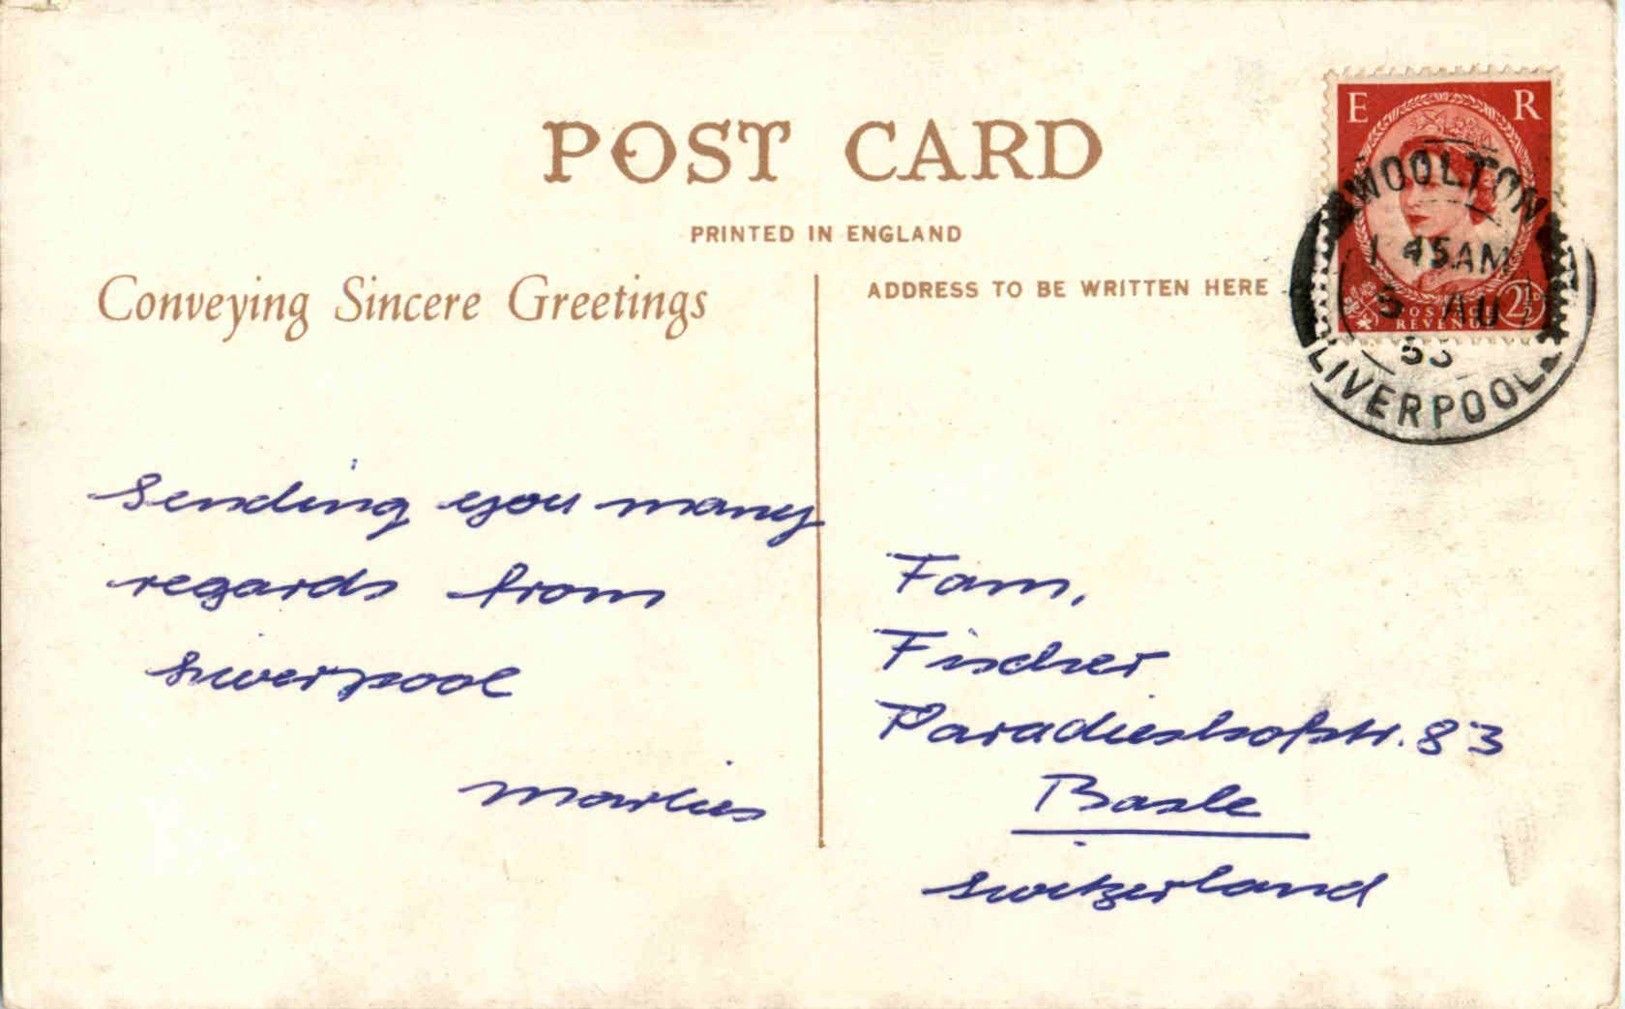 POST CARD
PRINTED IN ENGLAND
Conveying Sincere Greetings
ADDRESS TO BE WRITTEN HERE
E R
POSTAGE
REVENUE
2½D
WOOLTON
45AM
5 AU
LIVERPOOL
Sending you many
regards from
Liverpool
Marlies
Fam.
Fischer
Paradieshofstr. 83
Basle
Switzerland